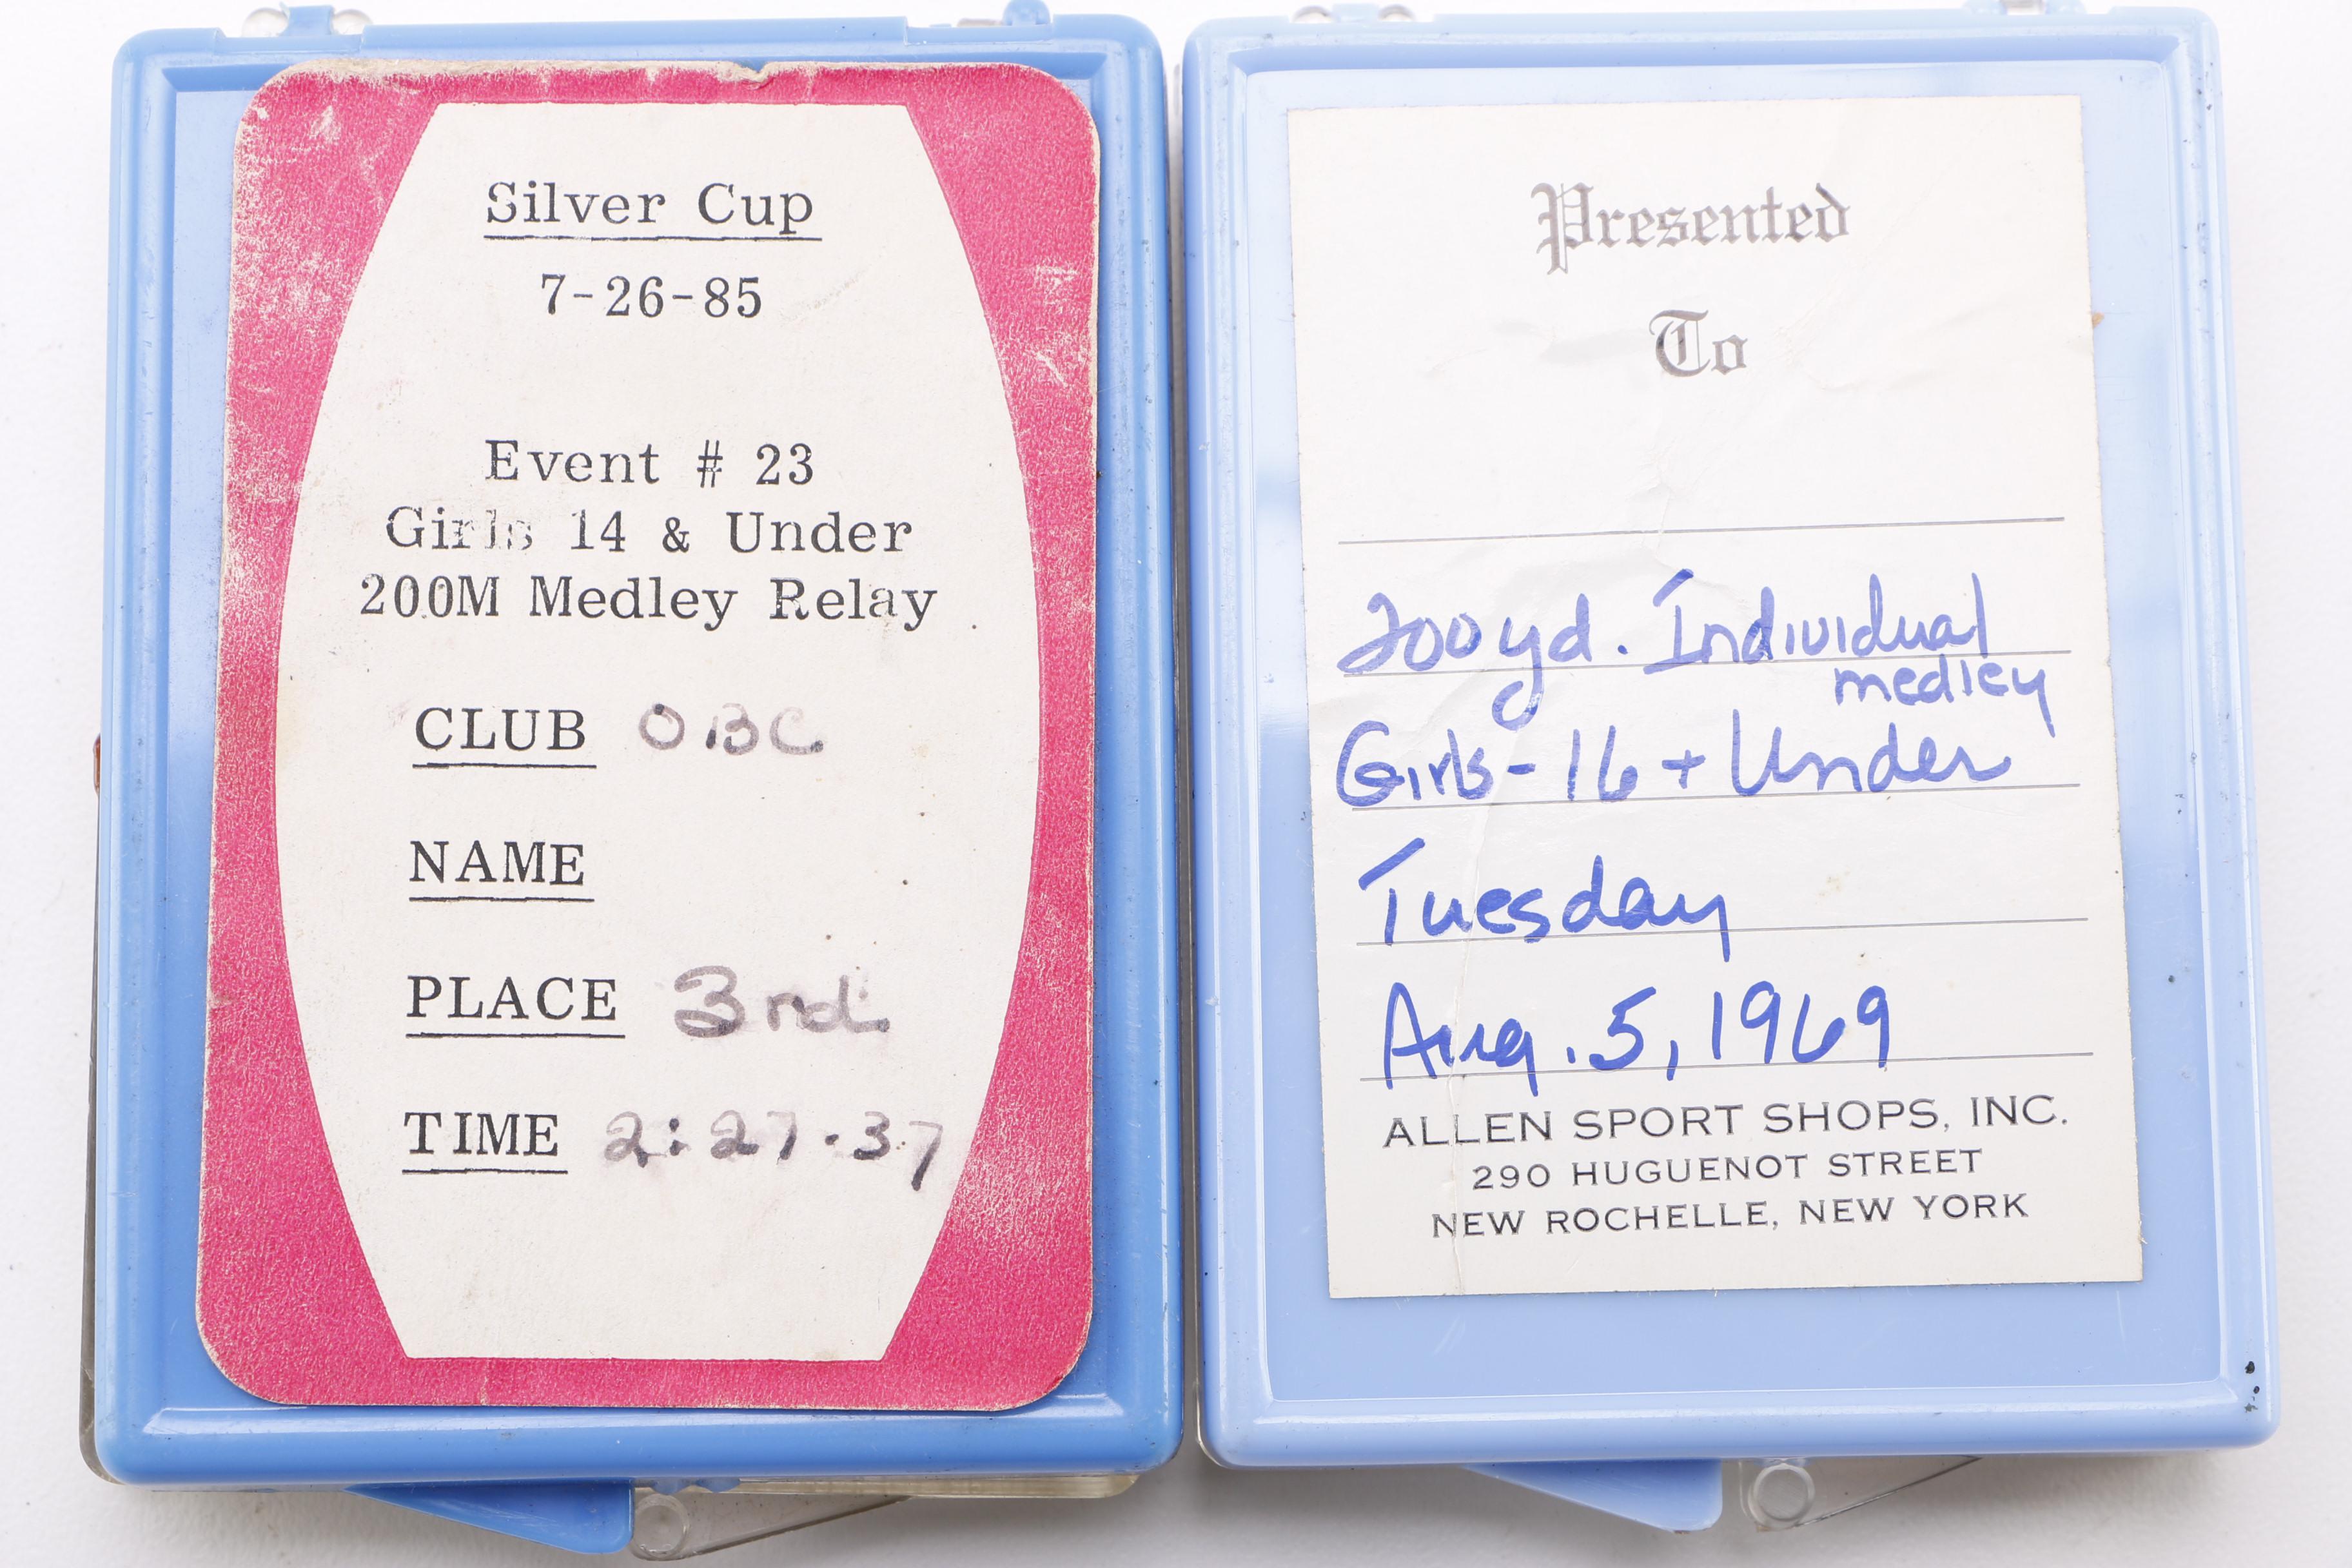 Silver Cup
7-26-85
Event # 23
Girls 14 & Under
200M Medley Relay
CLUB OBC
NAME
PLACE 3rd
TIME 2:27.37
Presented
To
200 yd. Individual
medley
Girls - 16 + Under
Tuesday
Aug. 5, 1969
ALLEN SPORT SHOPS, INC.
290 HUGUENOT STREET
NEW ROCHELLE, NEW YORK